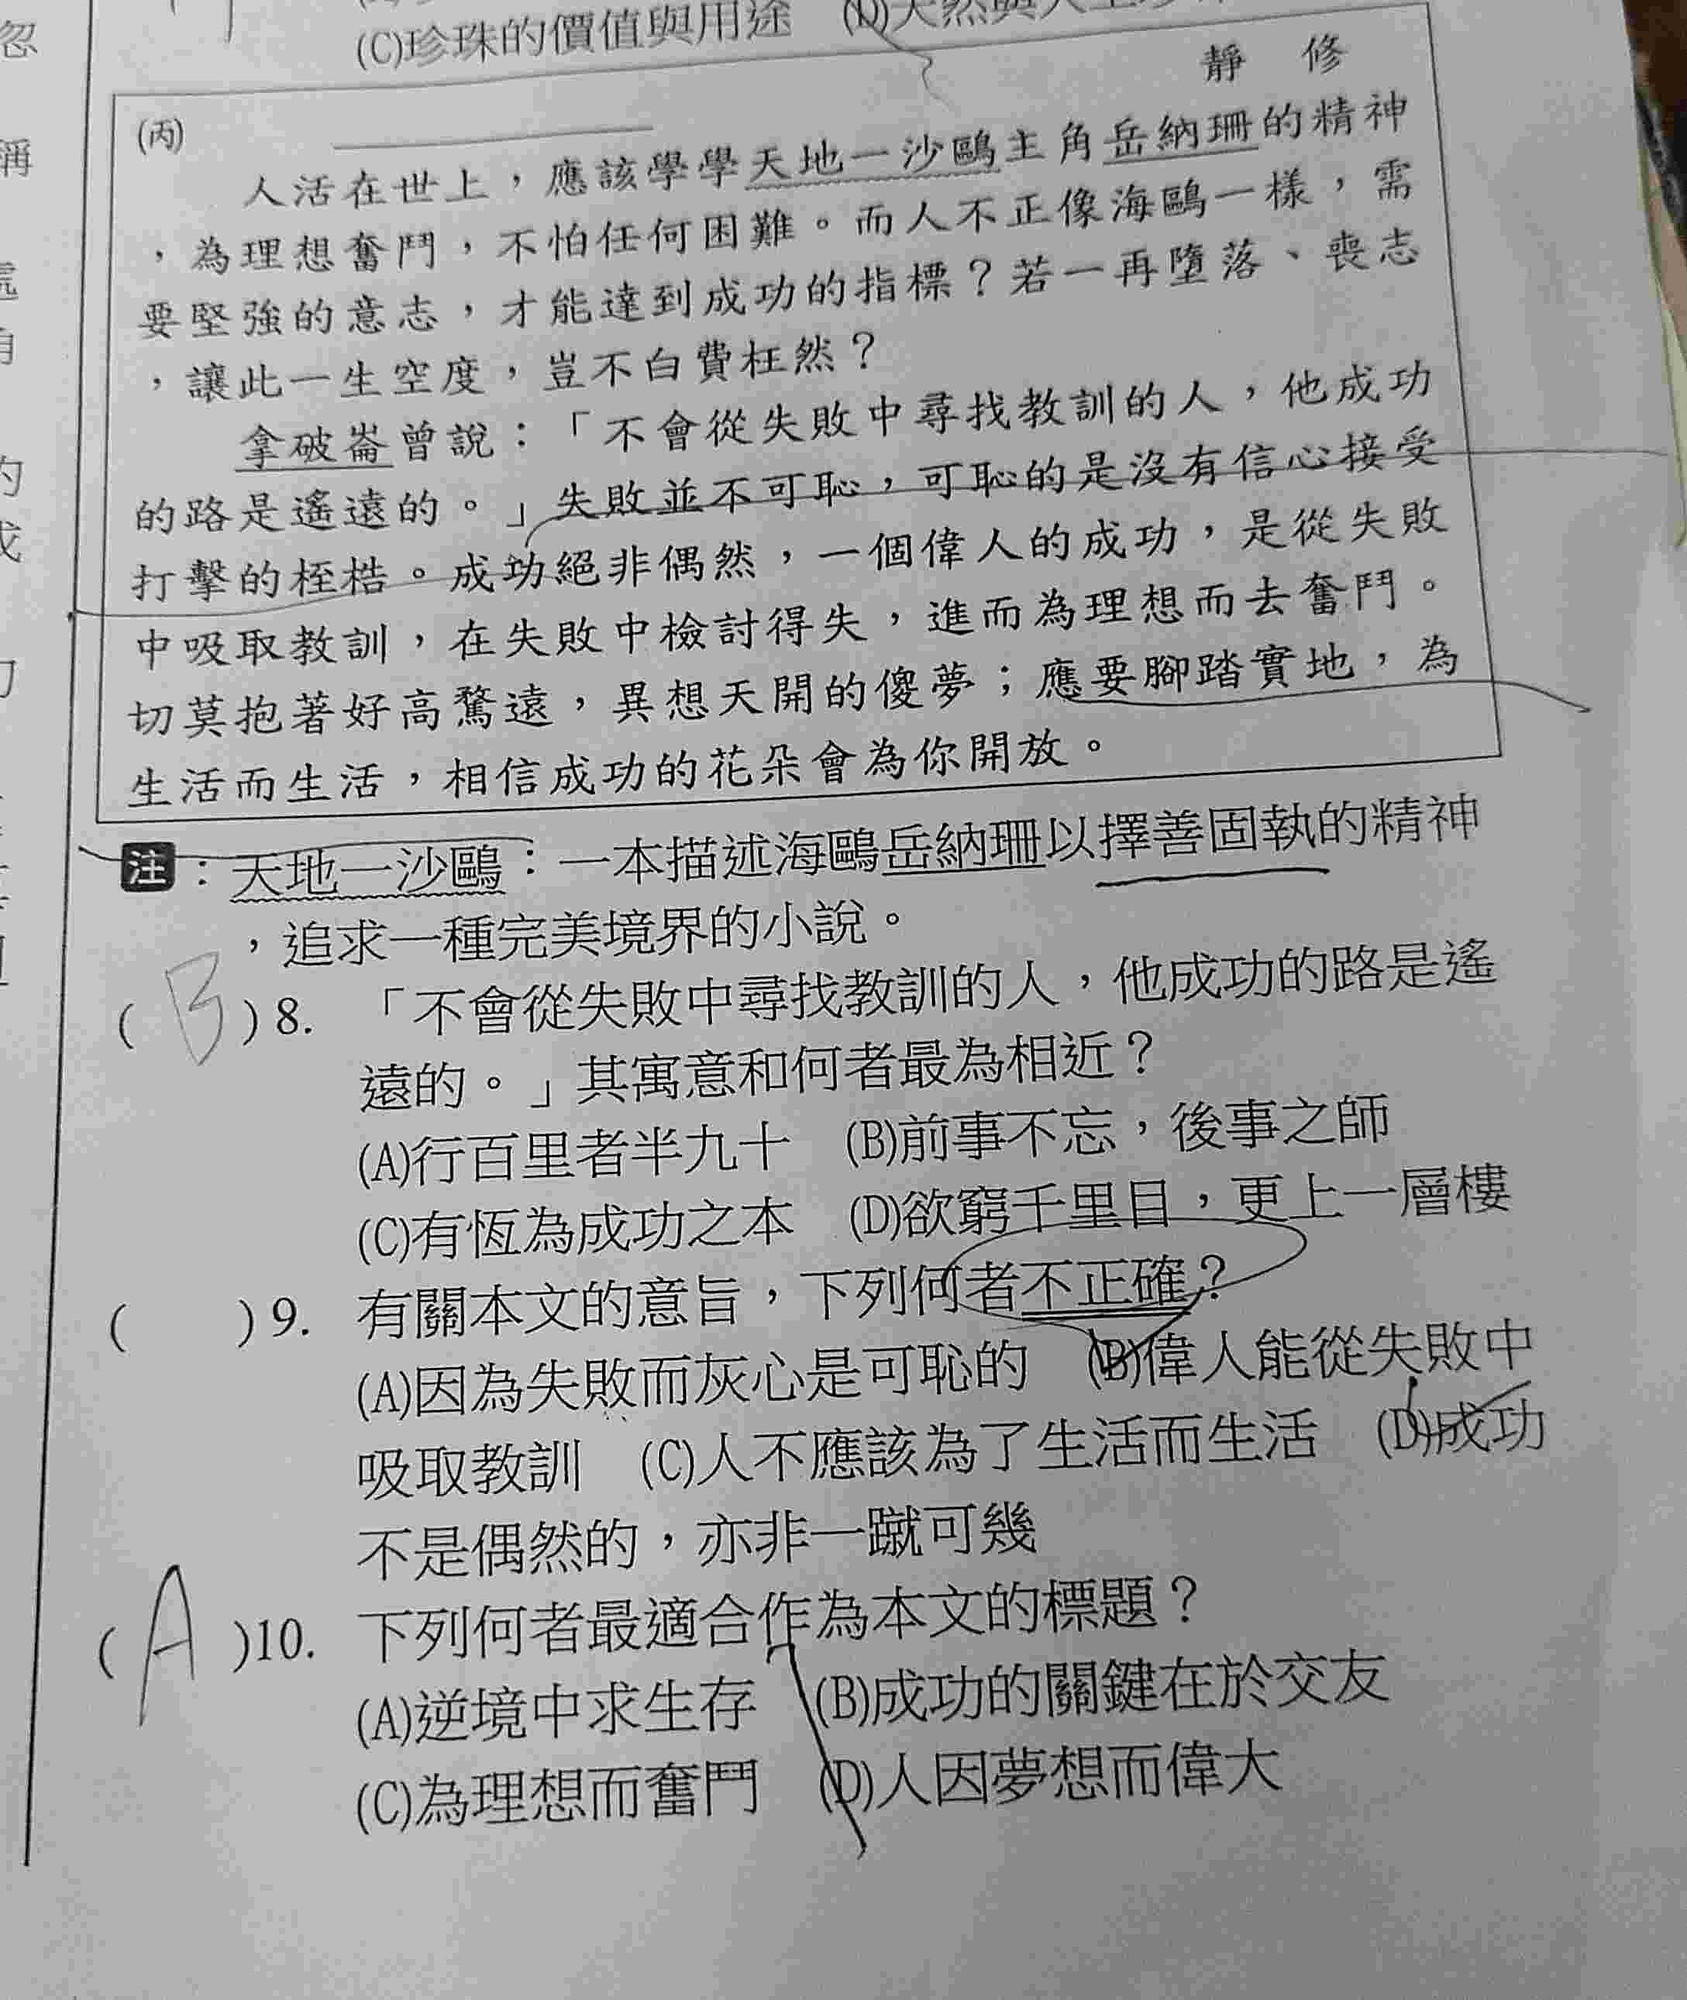 (C)珍珠的價值與用途 (D)天然與人工
靜 修
(丙)
人活在世上，應該學學天地一沙鷗主角岳納珊的精神
，為理想奮鬥，不怕任何困難。而人不正像海鷗一樣，需
要堅強的意志，才能達到成功的指標？若一再墮落、喪志
，讓此一生空度，豈不白費枉然？
拿破崙曾說：「不會從失敗中尋找教訓的人，他成功
的路是遙遠的。」失敗並不可恥，可恥的是沒有信心接受
打擊的桎梏。成功絕非偶然，一個偉人的成功，是從失敗
中吸取教訓，在失敗中檢討得失，進而為理想而去奮鬥。
切莫抱著好高騖遠，異想天開的傻夢；應要腳踏實地，為
生活而生活，相信成功的花朵會為你開放。
注：天地一沙鷗：一本描述海鷗岳納珊以擇善固執的精神
，追求一種完美境界的小說。
( B ) 8. 「不會從失敗中尋找教訓的人，他成功的路是遙
遠的。」其寓意和何者最為相近？
(A)行百里者半九十 (B)前事不忘，後事之師
(C)有恆為成功之本 (D)欲窮千里目，更上一層樓
( ) 9. 有關本文的意旨，下列何者不正確？
(A)因為失敗而灰心是可恥的 (B)偉人能從失敗中
吸取教訓 (C)人不應該為了生活而生活 (D)成功
不是偶然的，亦非一蹴可幾
( A )10. 下列何者最適合作為本文的標題？
(A)逆境中求生存 (B)成功的關鍵在於交友
(C)為理想而奮鬥 (D)人因夢想而偉大